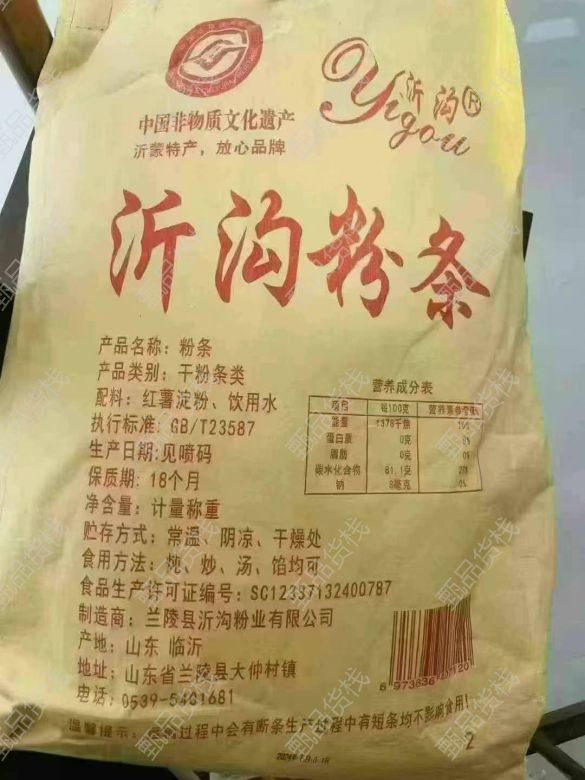 中国非物质文化遗产
沂蒙特产，放心品牌
沂沟®
Yigou
沂沟粉条
产品名称：粉条
产品类别：干粉条类
配料：红薯淀粉、饮用水
执行标准：GB/T23587
生产日期：见喷码
保质期：18个月
净含量：计量称重
贮存方式：常温、阴凉、干燥处
食用方法：炖、炒、汤、馅均可
食品生产许可证编号：SC12337132400787
制造商：兰陵县沂沟粉业有限公司
产地：山东 临沂
地址：山东省兰陵县大仲村镇
电话：0539-5481681
营养成分表
项目 每100克 营养素参考值%
能量 1378千焦 16%
蛋白质 0克 0%
脂肪 0克 0%
碳水化合物 81.1克 27%
钠 8毫克 0%
温馨提示：运输过程中会有断条生产过程中有短条均不影响食用！
2
甄品货栈